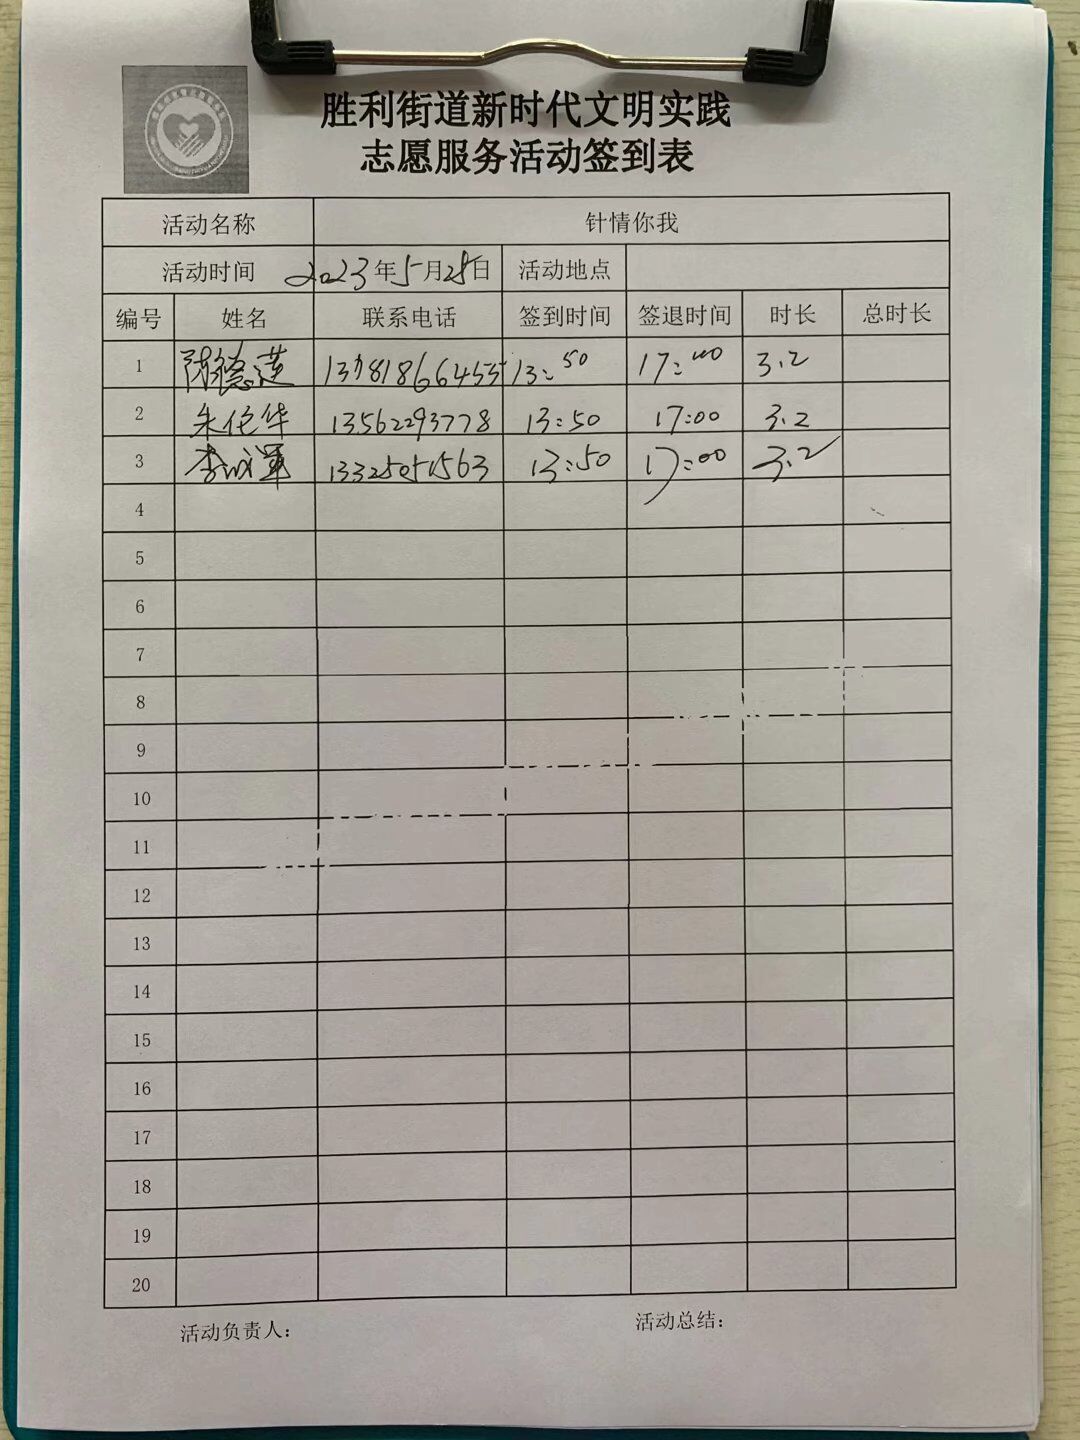 胜利街道新时代文明实践
志愿服务活动签到表
活动名称 针情你我
活动时间 2023年5月28日 活动地点
编号 姓名 联系电话 签到时间 签退时间 时长 总时长
1 陈德莲 13:50 17:00 3.2
2 朱伦华 13562293778 13:50 17:00 3.2
3 13325051563 13:50 17:00 3.2
4
5
6
7
8
9
10
11
12
13
14
15
16
17
18
19
20
活动负责人： 活动总结：